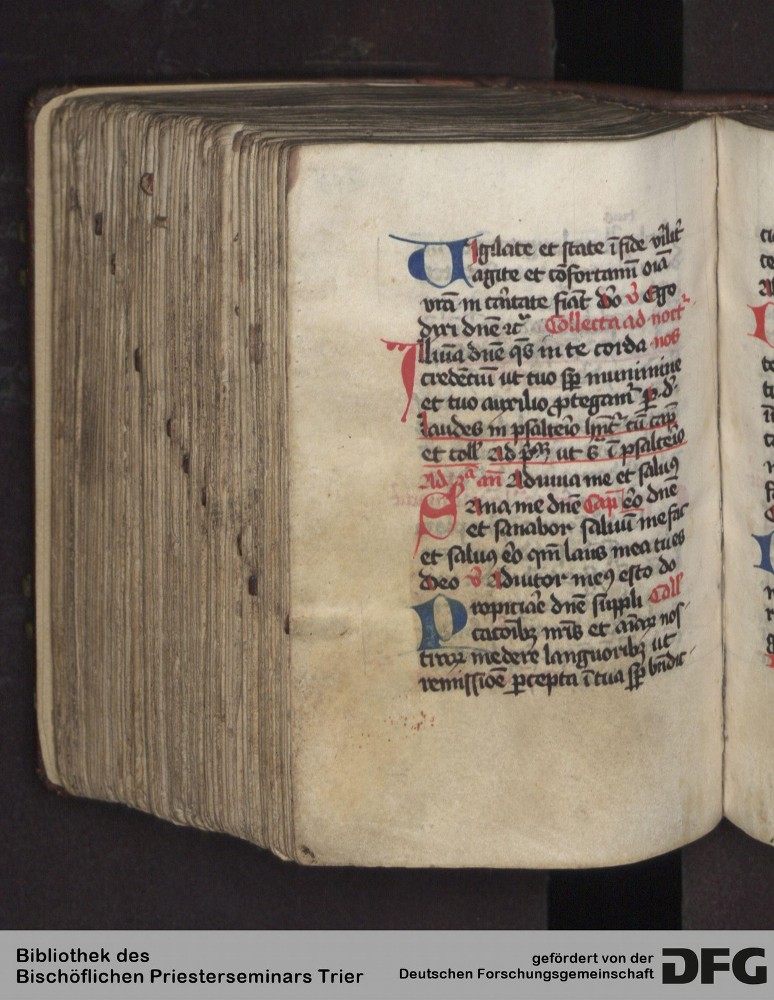 Vigilate et state ĩ fide vĩlit̃
agite et cõfortamĩ oĩa
vrã in caritate fiãt dõo v̾ Ego
dixi dñe ⁊c̃ Collecta ad noct
Illuĩa dñe q̃s in te corda nos
credẽtiũ ut tuo sp̃ munimine
et tuo auxilio ꝓtegam̃ p. d.
Laudes in psalteĩo cũ cap̃
et coll̃ Ad ut s̃ ĩ psalteĩo
Ad 3ᵃ añ Adiuua me et saluꝯ
Sana me dñe Cap̃ ẽo dñe
et sanabor saluũ me fac
et saluꝯ ẽo qm̃ laus mea tu es
deo v̾ Adiutor meꝯ esto do
Propiciãe dñe sũppli Coll̃
cacoĩbꝫ nr̃is et aĩaꝝ nos
traꝝ medere languoribꝫ ut
remissioẽ ꝑcepta ĩ tua sp̃ bñdic
Bibliothek des
Bischöflichen Priesterseminars Trier
gefördert von der
Deutschen Forschungsgemeinschaft DFG